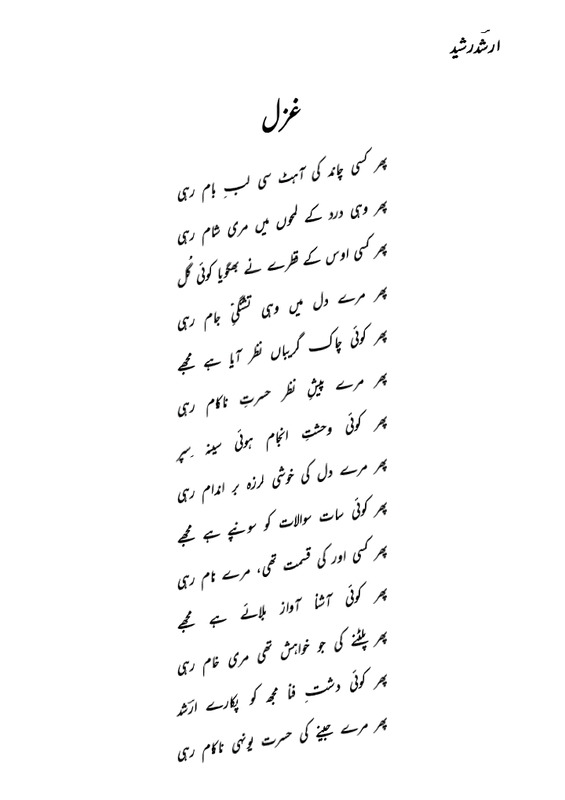 ارشدؔ رشید
غزل
پھر کسی چاند کی آہٹ سی لبِ بام رہی
پھر وہی درد کے لمحوں میں مری شام رہی
پھر کسی اوس کے قطرے نے بھگویا کوئی گُل
پھر مرے دل میں وہی تشنگیِٔ جام رہی
پھر کوئی چاک گریباں نظر آیا ہے مجھے
پھر مرے پیشِ نظر حسرتِ ناکام رہی
پھر کوئی وحشتِ انجام ہوئی سینہ سِپر
پھر مرے دل کی خوشی لرزہ بر اندام رہی
پھر کوئی سات سوالات کو سونپے ہے مجھے
پھر کسی اور کی قسمت تھی، مرے نام رہی
پھر کوئی آشنا آواز بلائے ہے مجھے
پھر پلٹنے کی جو خواہش تھی مری خام رہی
پھر کوئی دشتِ فنا مجھ کو پکارے ارشدؔ
پھر مرے جینے کی حسرت یونہی ناکام رہی